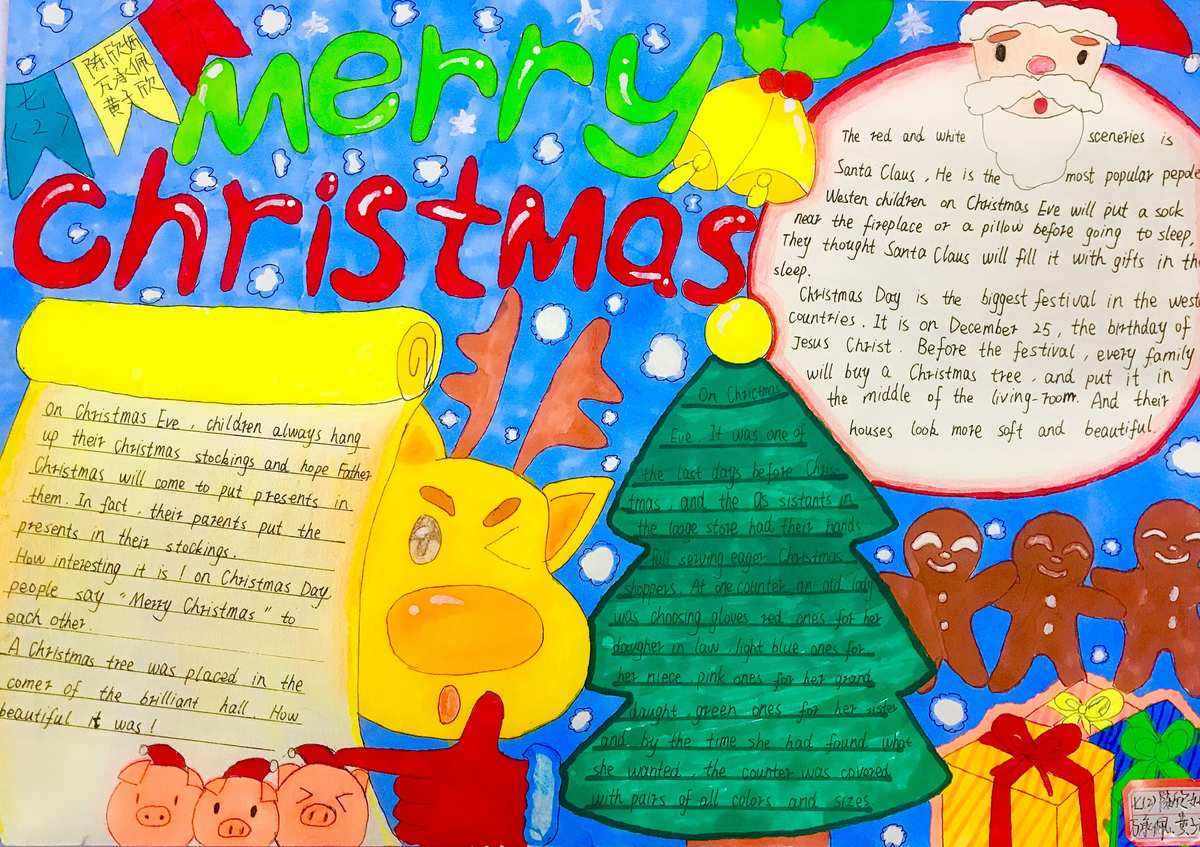 七
<2>
陈欣炳
万承佩
黄文欣
Merry
Christmas
The red and white sceneries is
Santa Claus , He is the most popular pepole
Westen children on Christmas Eve will put a sock
near the fireplace or a pillow before going to sleep,
They thought Santa Claus will fill it with gifts in the
sleep.
Christmas Day is the biggest festival in the west
countries . It is on December 25 , the birthday of
Jesus Christ . Before the festival , every family
will buy a Christmas tree , and put it in
the middle of the living-room. And their
houses look more soft and beautiful.
On Christmas Eve , children always hang
up their Christmas stockings and hope Father
Christmas will come to put presents in
them. In fact , their parents put the
presents in their stockings.
How interesting it is ! on Christmas Day
people say "Merry Christmas" to
each other.
A Christmas tree was placed in the
corner of the brilliant hall. How
beautiful it was !
On Christmas
Eve. It was one of
the last days before Chris-
tmas and the as sistants in
the looge store had their hands
full serving eager Christmas
shoppers. At one counter an old lady
was choosing gloves red ones for her
daugher in law , light blue ones for
her niece pink ones for her grand
daught , green ones for her sister
and by the time she had found what
she wanted , the counter was covered
with pairs of all colors and sizes
七(2) 陈欣
万承佩、黄